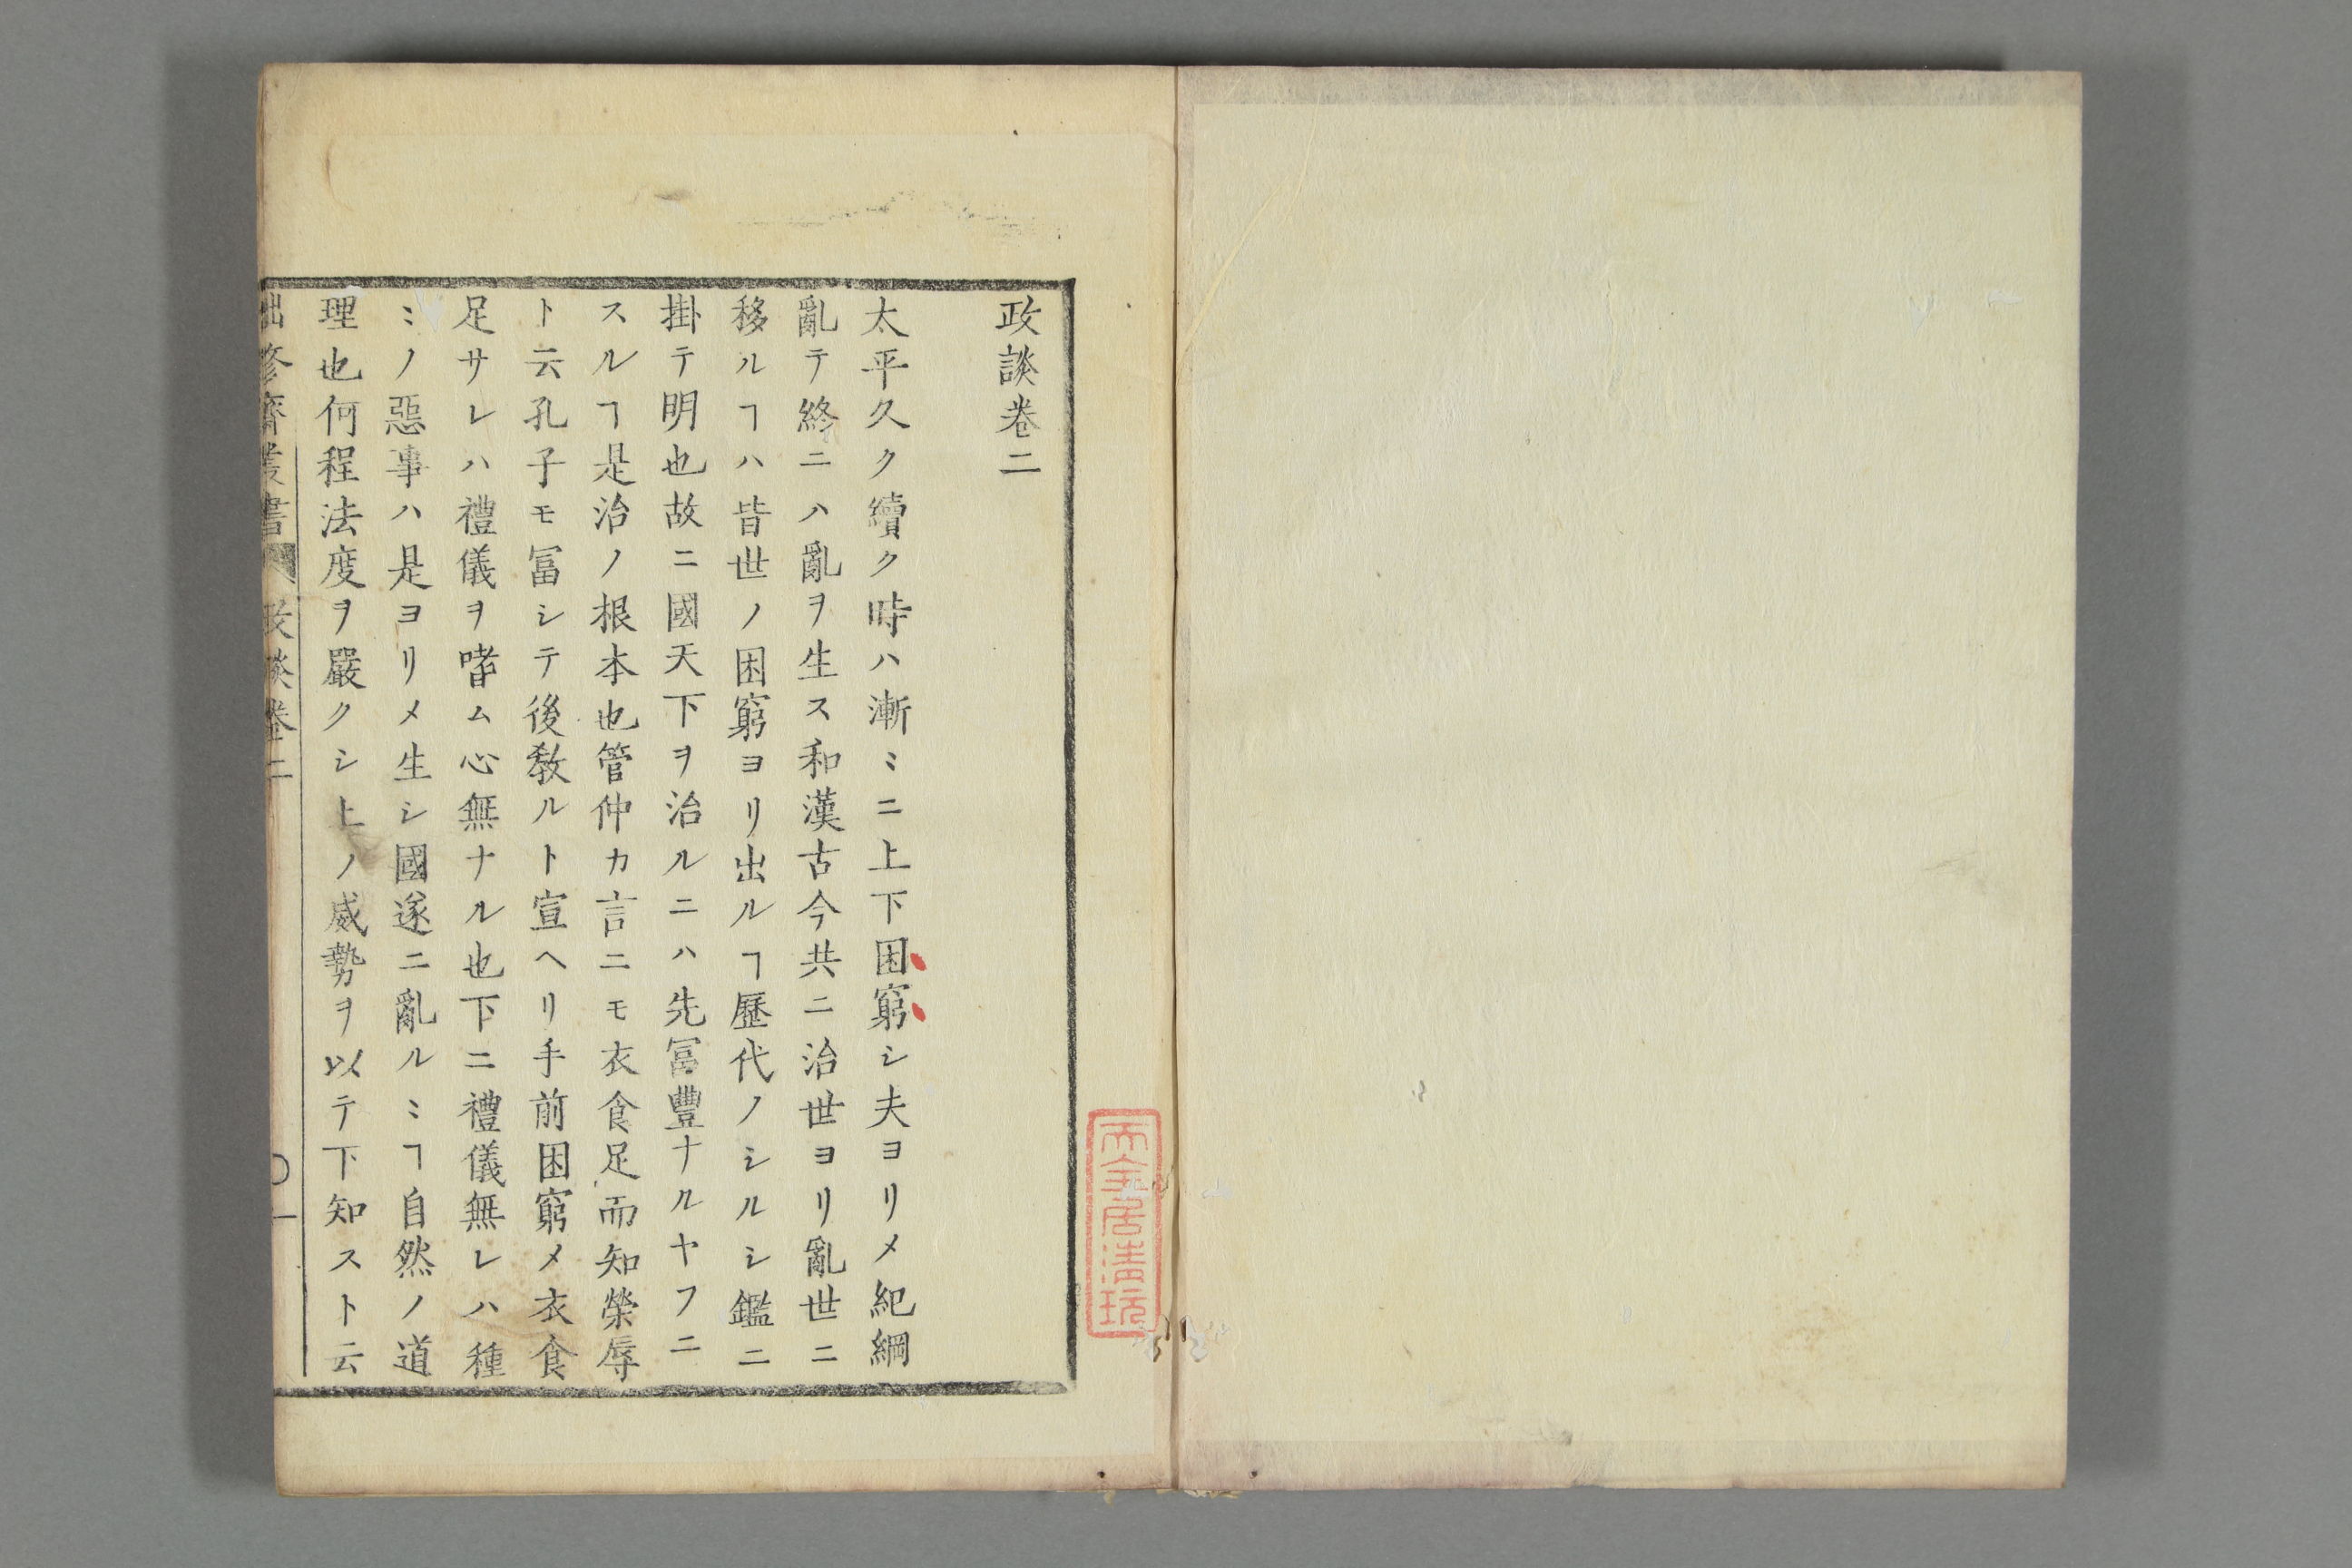 政談巻二
太平久ク續ク時ハ漸ミニ上下困窮シ夫ヨリメ紀綱
亂テ終ニハ亂ヲ生ス和漢古今共ニ治世ヨリ亂世ニ
移ルヿハ皆世ノ困窮ヨリ出ルヿ歴代ノシルシ鑑ニ
掛テ明也故ニ國天下ヲ治ルニハ先冨豐ナルヤフニ
スルヿ是治ノ根本也管仲カ言ニモ衣食足而知榮辱
ト云孔子モ冨シテ後教ルト宣ヘリ手前困窮メ衣食
足サレハ禮儀ヲ嗜ム心無ナル也下ニ禮儀無レハ種
ミノ惡事ハ是ヨリメ生シ國遂ニ亂ルミヿ自然ノ道
理也何程法度ヲ嚴クシ上ノ威勢ヲ以テ下知スト云
修齊叢書 政談巻二 〇一